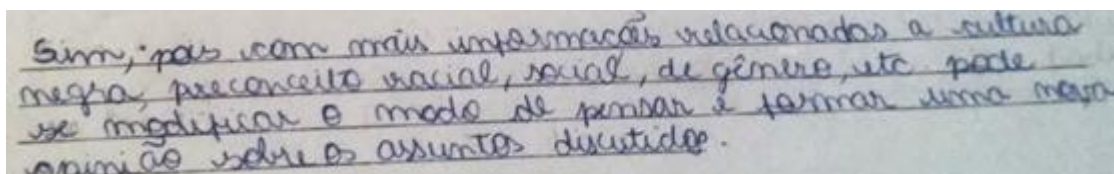 Sim, pois com mais informações relacionadas a cultura
negra, preconceito racial, social, de gênero, etc pode
se modificar o modo de pensar e formar uma nova
opinião sobre os assuntos discutidos.